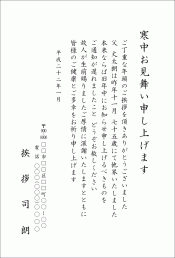 寒中お見舞い申し上げます
ご丁重な年頭のご挨拶を頂きありがとうございました
父 太郎は昨年十一月 十五歳にて他界いたしました
本来ならば旧年中にお知らせ申し上げるべきものを
ご通知が遅れましたこと どうぞお赦しください
故人が生前賜りましたご厚情に深謝いたしますとともに
皆様のご健康とご多幸をお祈り申し上げます
平成二十二年一月
〒000-0000
挨拶司朗